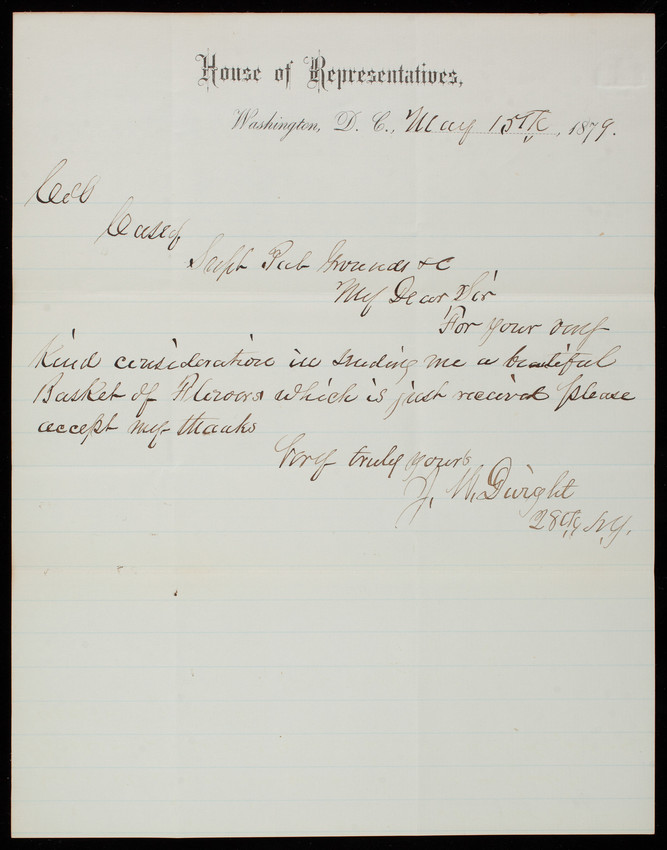 House of Representatives,
Washington, D. C., May 15th, 1879.
Col
Casey
Supt Pub Grounds &c
My Dear Sir
For your very
Kind consideration in sending me a beautiful
Basket of Flowers which is just received please
accept my thanks
Very truly yours
J. W. Dwight
28th N.Y.